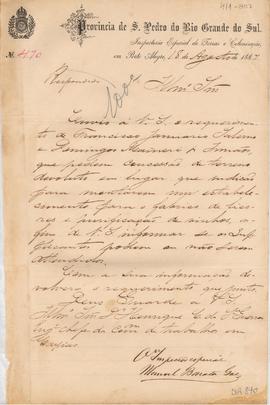 Provincia de S. Pedro do Rio Grande do Sul.
Inspectoria Especial de Terras e Colonisação,
em Porto Alegre, 15 de Agosto de 1887
N. 470
Respondido
Illmo Snr
Envio a V. S. o requerimen-
to de Francisco Januario Salerno
e Domingos e Irmão,
que pedem concessão de terras
devolutas em lugar que indicão
para montarem um estabele-
cimento para o fabrico de
e purificação de vinhos, a
fim de V. S. informar se os sup-
plicantes podem ou não serem
attendidos.
Com a sua informação de-
volverá o requerimento que junto.
Deus Guarde a V. S.
Illmo Snr Dr Henrique
Engro chefe da Comm de trabalho em
Caxias.
O Inspector especial
Manoel Barata Góes